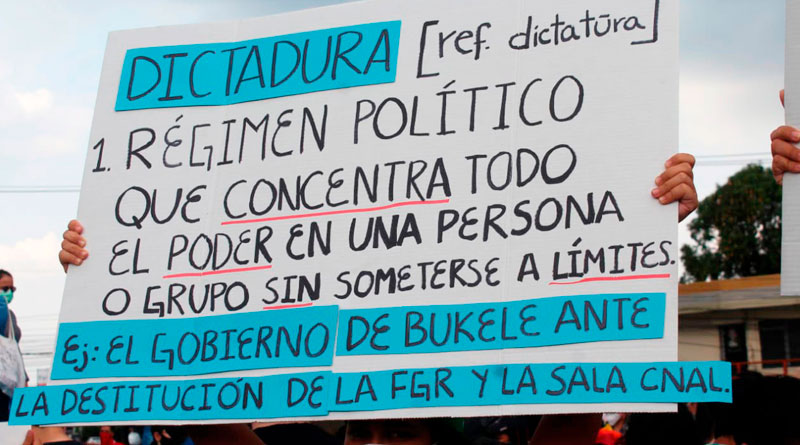 DICTADURA [ref. dictatūra]
1. RÉGIMEN POLÍTICO
QUE CONCENTRA TODO
EL PODER EN UNA PERSONA
O GRUPO SIN SOMETERSE A LÍMITES.
Ej: EL GOBIERNO DE BUKELE ANTE
LA DESTITUCIÓN DE LA FGR Y LA SALA CNAL.